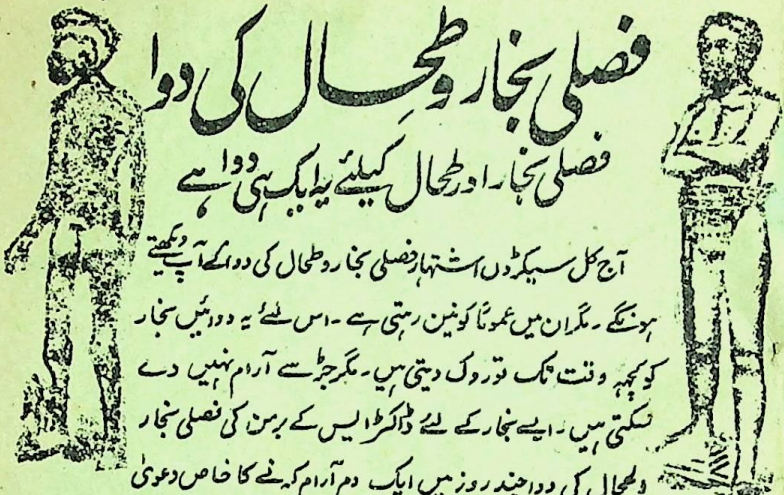 فصلی بخار و طحال کی دوا
فصلی بخار اور طحال کیلئے یہ ایک ہی دوا ہے
آج کل سیکڑوں اشتہار فصلی بخار و طحال کی دوا کے آپ دیکھتے
ہونگے ۔ مگر ان میں عموماً کونین رہتی ہے ۔ اس لئے یہ دوائیں بخار
کو کچھہ وقت تک تو روک دیتی ہیں ۔ مگر جڑ سے آرام نہیں دے
سکتی ہیں ۔ ایسے بخار کے لئے ڈاکٹر ایس کے برمن کی فصلی بخار
و طحال کی دوا چند روز میں ایک دم آرام کرنے کا خاص دعویٰ